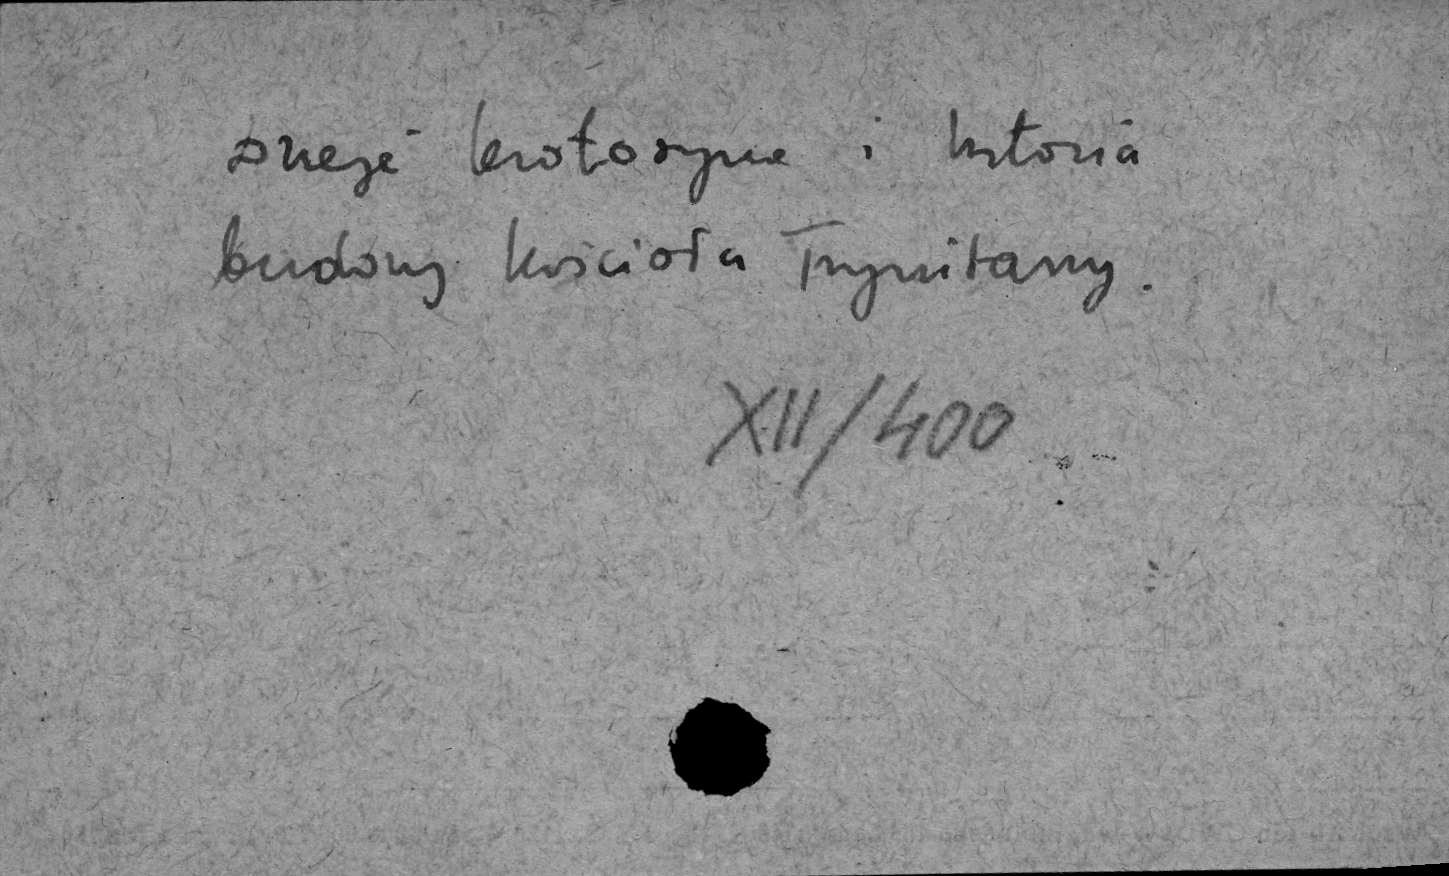 dzieje Krotoszyna i historia
budowy kościoła Trynitarzy.
XII/400